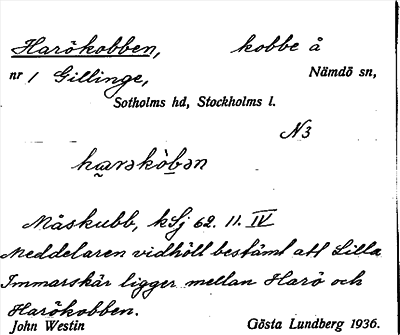 Harökobben, kobbe å
nr 1 Gillinge, Nämdö sn,
Sotholms hd, Stockholms l.
N3
haraköbən
Måskubb, kSj 62. 11. IV
Meddelaren vidhöll bestämt att Lilla
Immarskär ligger mellan Harö och
Harökobben.
John Westin Gösta Lundberg 1936.